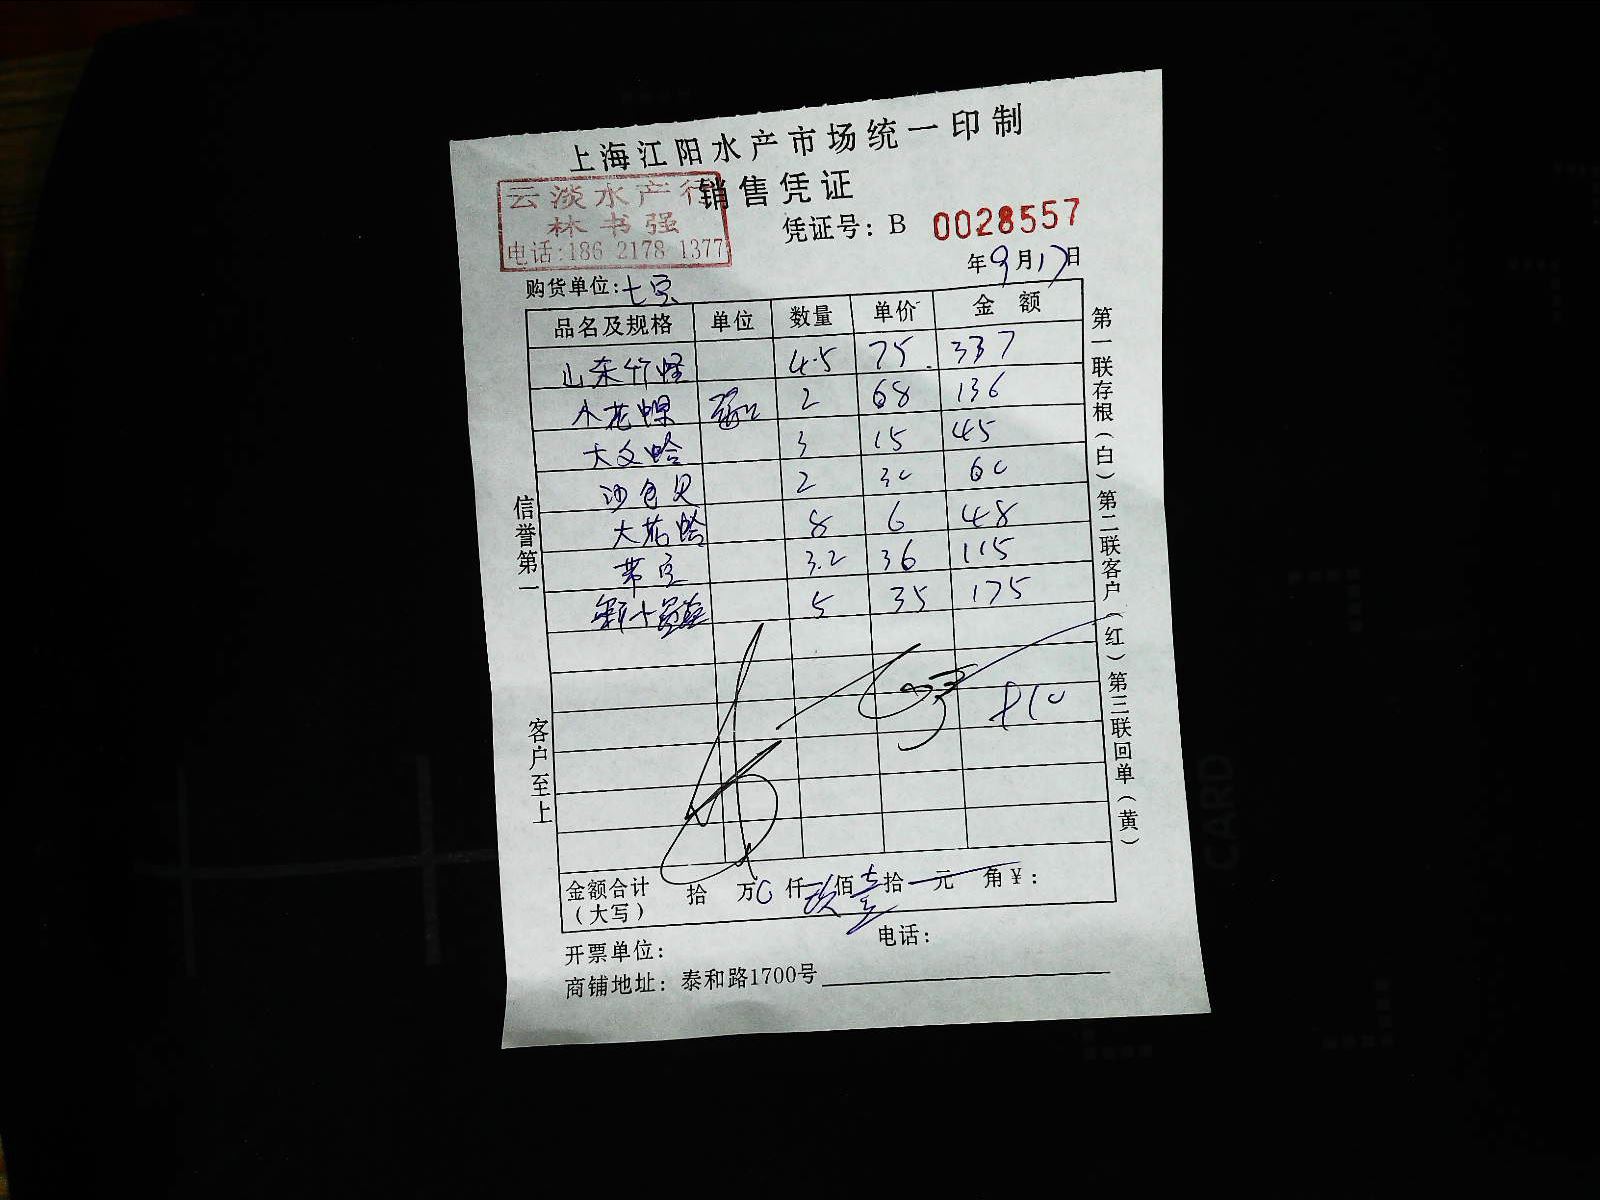 上海江阳水产市场统一印制
销售凭证
云淡水产行
林书强
电话:186 2178 1377
凭证号: B 0028557
年9月17日
购货单位:七宝
品名及规格 单位 数量 单价 金额
山东竹蛏 4.5 75 337
小花螺 2 68 136
大文蛤 3 15 45
沙白贝 2 30 60
大花蛤 8 6 48
带子 3.2 36 115
5 35 175
910
金额合计(大写) 拾 万 0 仟 玖 佰 壹 拾 元 角 ¥:
开票单位: 电话:
商铺地址: 泰和路1700号
信誉第一
客户至上
第一联存根(白)第二联客户(红)第三联回单(黄)
CARD